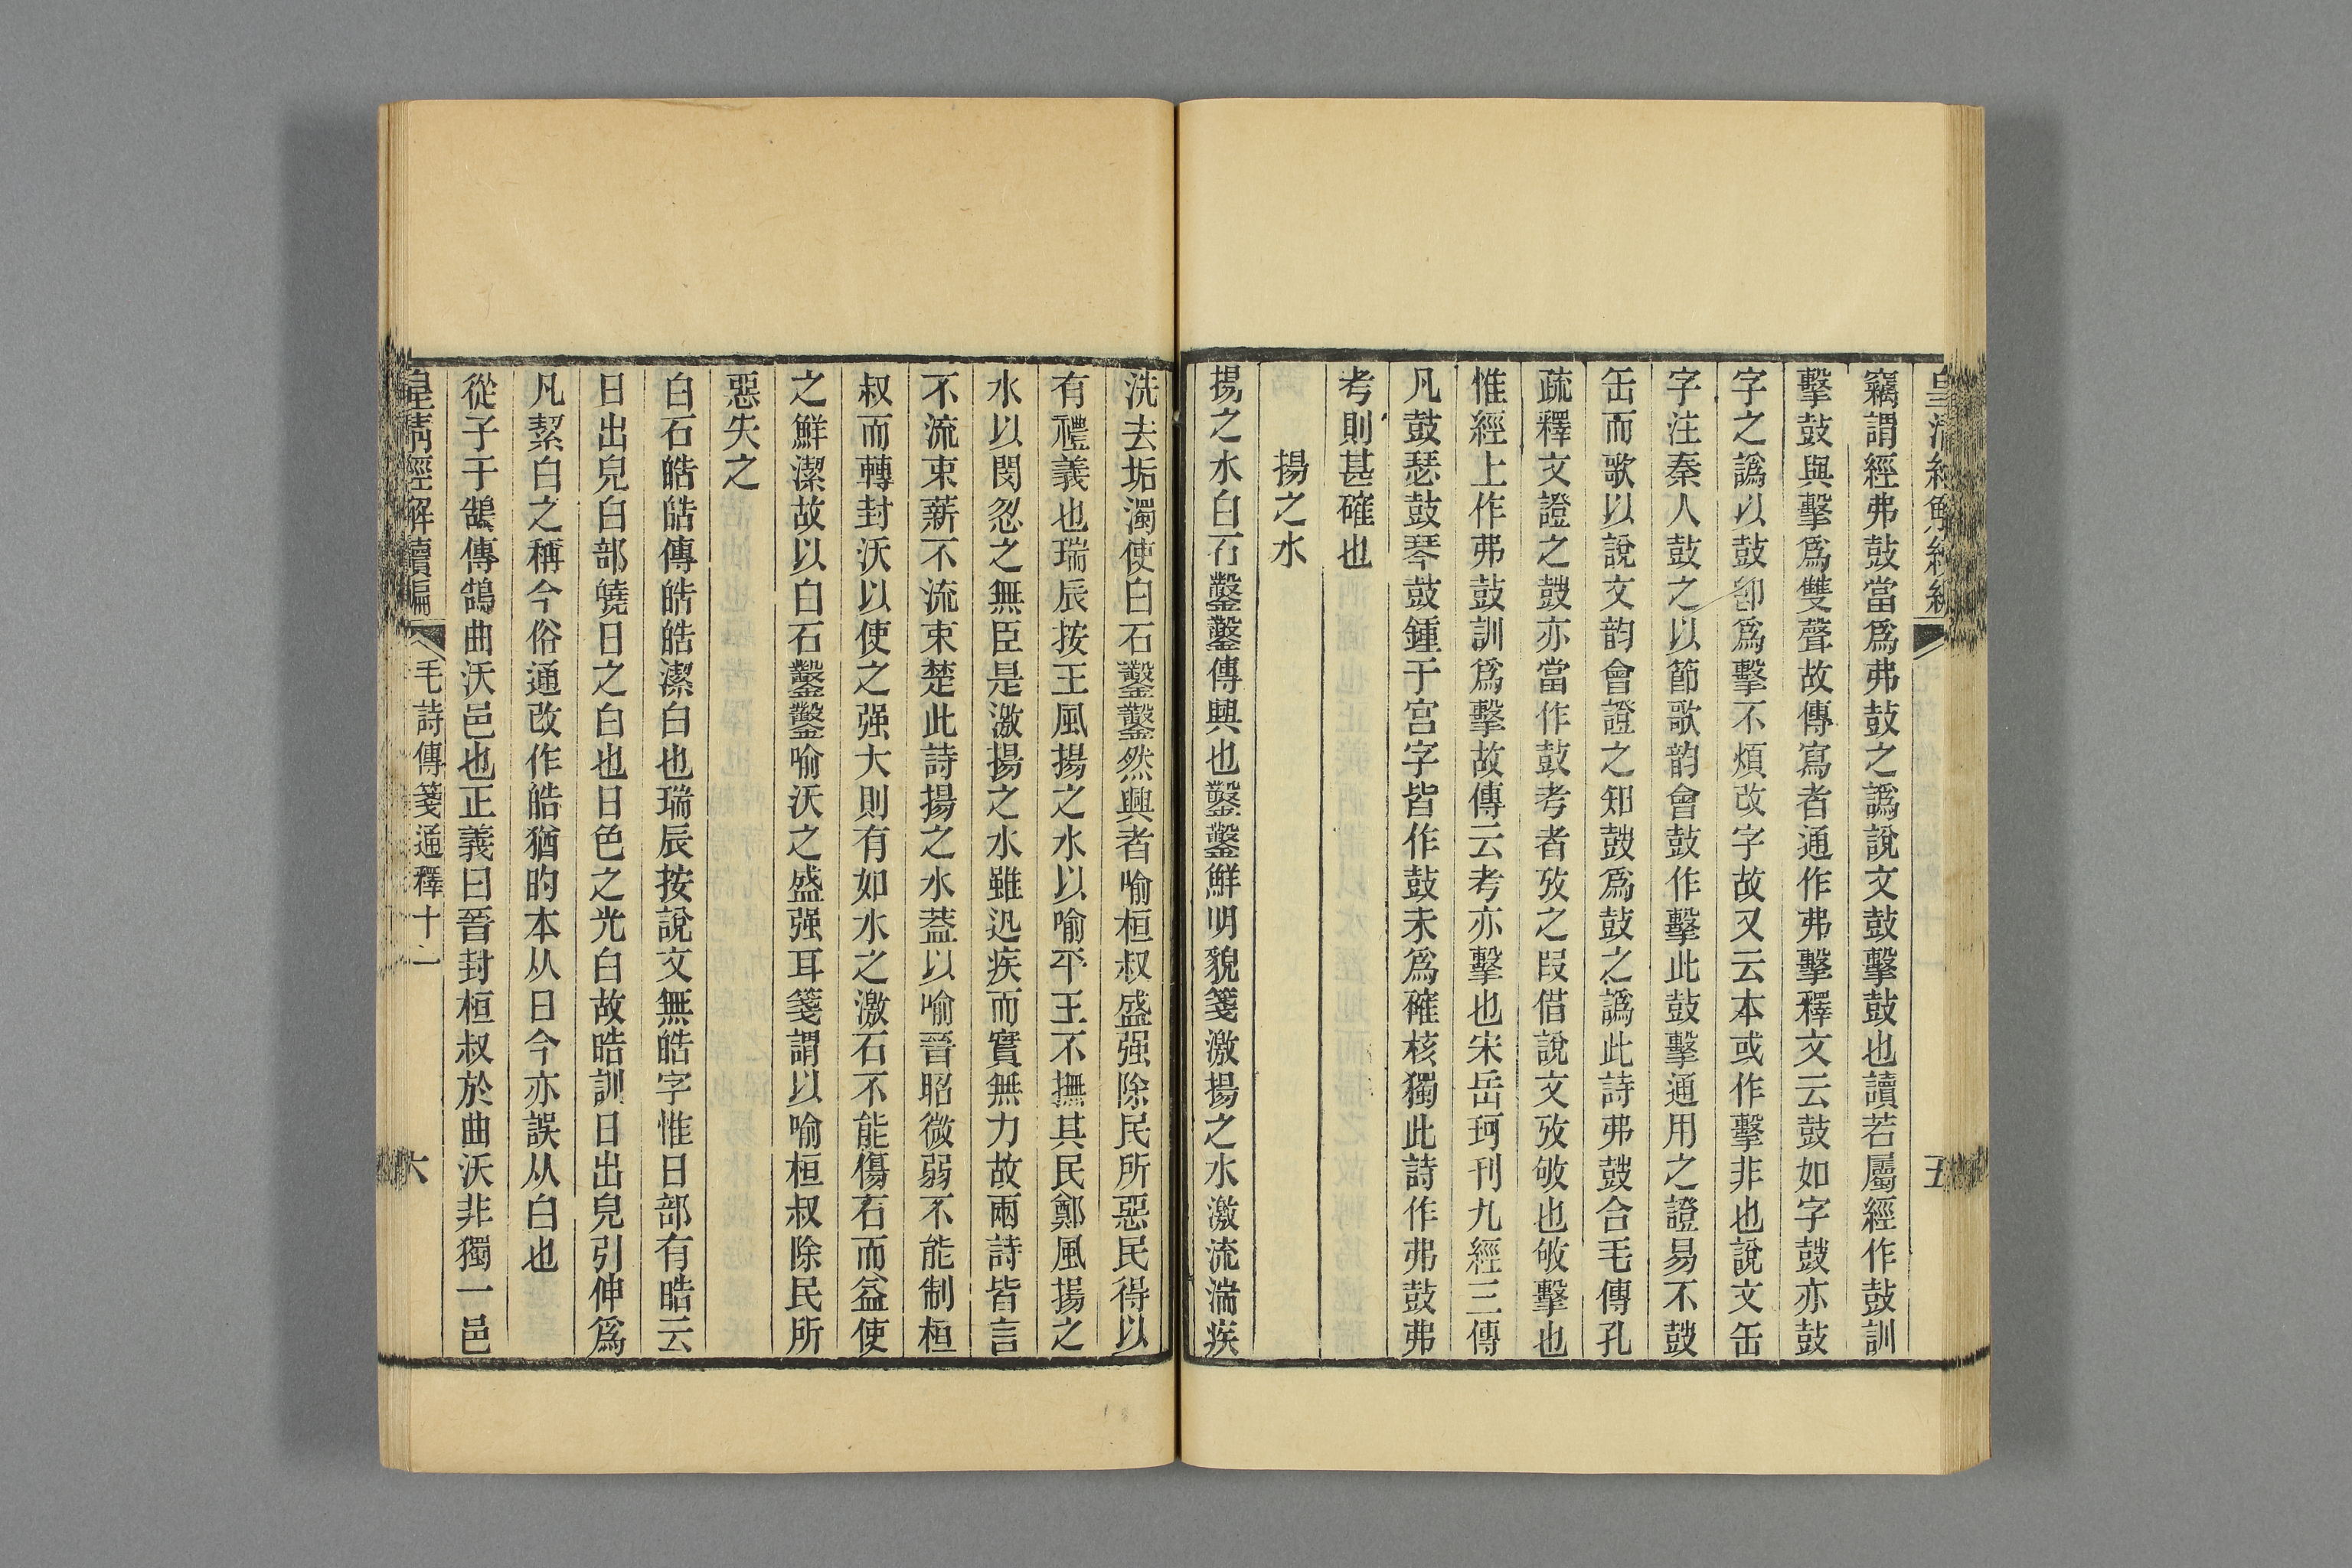 皇清經解續編
五
竊謂經弗鼓當爲弗鼔之譌說文鼔擊鼓也讀若屬經作鼔訓
擊鼓與擊爲雙聲故傳寫者通作弗擊釋文云鼓如字鼓亦鼔
字之譌以鼓卽爲擊不煩改字故又云本或作擊非也說文缶
字注秦人鼓之以節歌韵會鼓作擊此鼓擊通用之證易不鼓
缶而歌以說文韵會證之知鼓爲鼔之譌此詩弗鼓合毛傳孔
疏釋文證之鼓亦當作鼔考者攷之叚借說文攷敂也敂擊也
惟經上作弗鼓訓爲擊故傳云考亦擊也宋岳珂刊九經三傳
凡鼓瑟鼓琴鼓鍾于宮字皆作鼔未爲確核獨此詩作弗鼔弗
考則甚確也
揚之水
揚之水白石鑿鑿傳興也鑿鑿鮮明貌箋激揚之水激流湍疾
洗去垢濁使白石鑿鑿然興者喻桓叔盛强除民所惡民得以
有禮義也瑞辰按王風揚之水以喻平王不撫其民鄭風揚之
水以閔忽之無臣是激揚之水雖迅疾而實無力故兩詩皆言
不流束薪不流束楚此詩揚之水蓋以喻晉昭微弱不能制桓
叔而轉封沃以使之强大則有如水之激石不能傷石而益使
之鮮潔故以白石鑿鑿喻沃之盛强耳箋謂以喻桓叔除民所
惡失之
白石皓皓傳皓皓潔白也瑞辰按說文無皓字惟日部有晧云
日出皃白部皢日之白也日色之光白故晧訓日出皃引伸爲
凡絜白之稱今俗通改作皓猶旳本从日今亦誤从白也
從子于鵠傳鵠曲沃邑也正義曰晉封桓叔於曲沃非獨一邑
皇淸經解續編
毛詩傳箋通釋十一
六